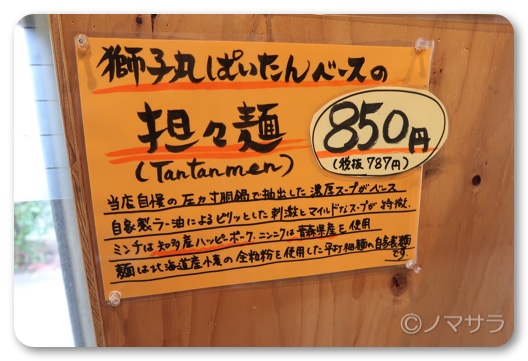 獅子丸ぱいたんベースの
担々麺
(Tantanmen)
850円
(税抜787円)
当店自慢の圧力寸胴鍋で抽出した濃厚スープがベース
自家製ラー油によるピリッとした刺激とマイルドなスープが特徴。
ミンチは知多産ハッピーポーク、ニンニクは青森県産を使用
麺は北海道産小麦の全粒粉を使用した平打粗麺の自家製麺です。
©ノマサラ